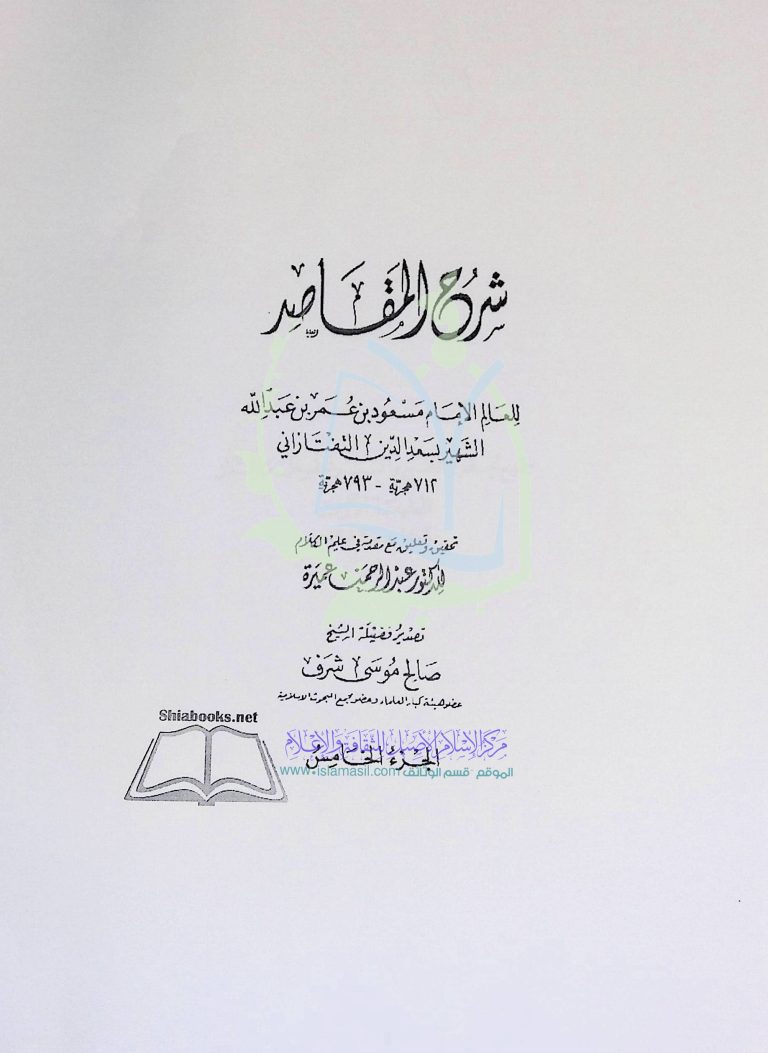 شَرْحُ المَقَاصِد
لِلعَالِم الإِمَام مَسْعُود بن عُمَر بن عَبد الله
الشَّهِير بسَعدِ الدِّين التفتازاني
٧١٢ هجرية - ٧٩٣ هجرية
تحقيق وتعليق مع مقدمة في علم الكلام
للدكتور عبد الرحمن عميرة
تصدير فضيلة الشيخ
صَالح مُوسَى شَرف
عضو هيئة كبار العلماء وعضو مجمع البحوث الإسلامية
Shiabooks.net
مركز الإسلام الأصيل للثقافة والإعلام
الجزءُ الخَامِسُ
الموقع - قسم الوثائق www.islamasil.com